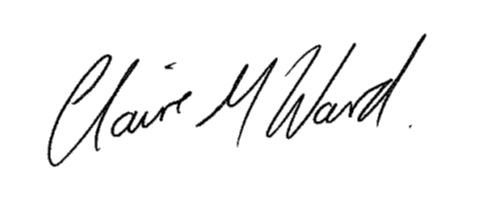 Claire M Ward.